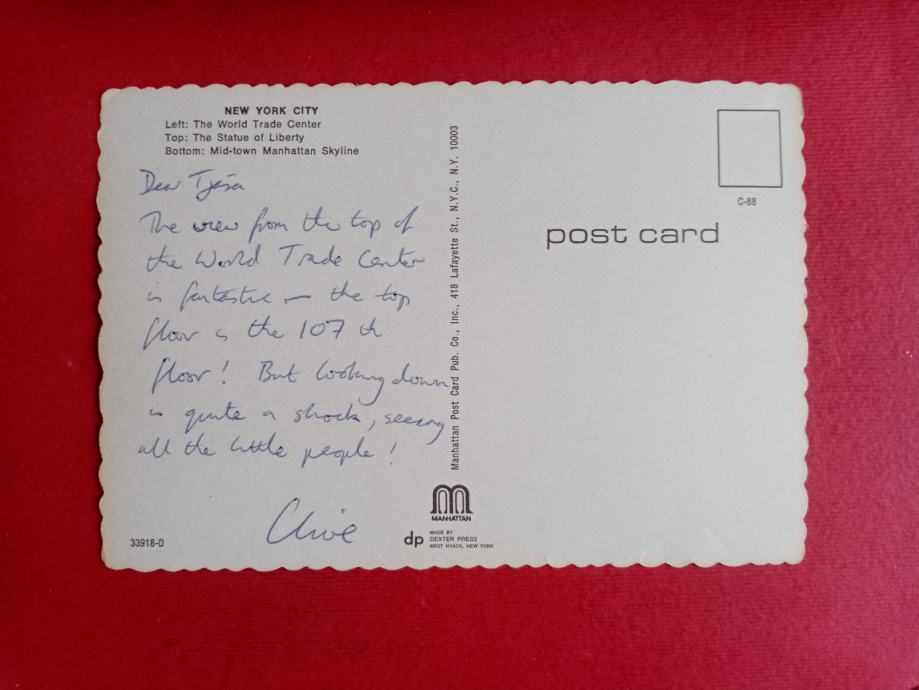 NEW YORK CITY
Left: The World Trade Center
Top: The Statue of Liberty
Bottom: Mid-town Manhattan Skyline
Dear
The view from the top of
the World Trade Center
is fantastic — the top
floor is the 107 th
floor! But looking down
is quite a shock, seeing
all the little people!
Clive
33918-D
Manhattan Post Card Pub. Co., Inc., 418 Lafayette St., N.Y.C., N.Y. 10003
MANHATTAN
dp
MADE BY
DEXTER PRESS
WEST NYACK, NEW YORK
C-88
post card